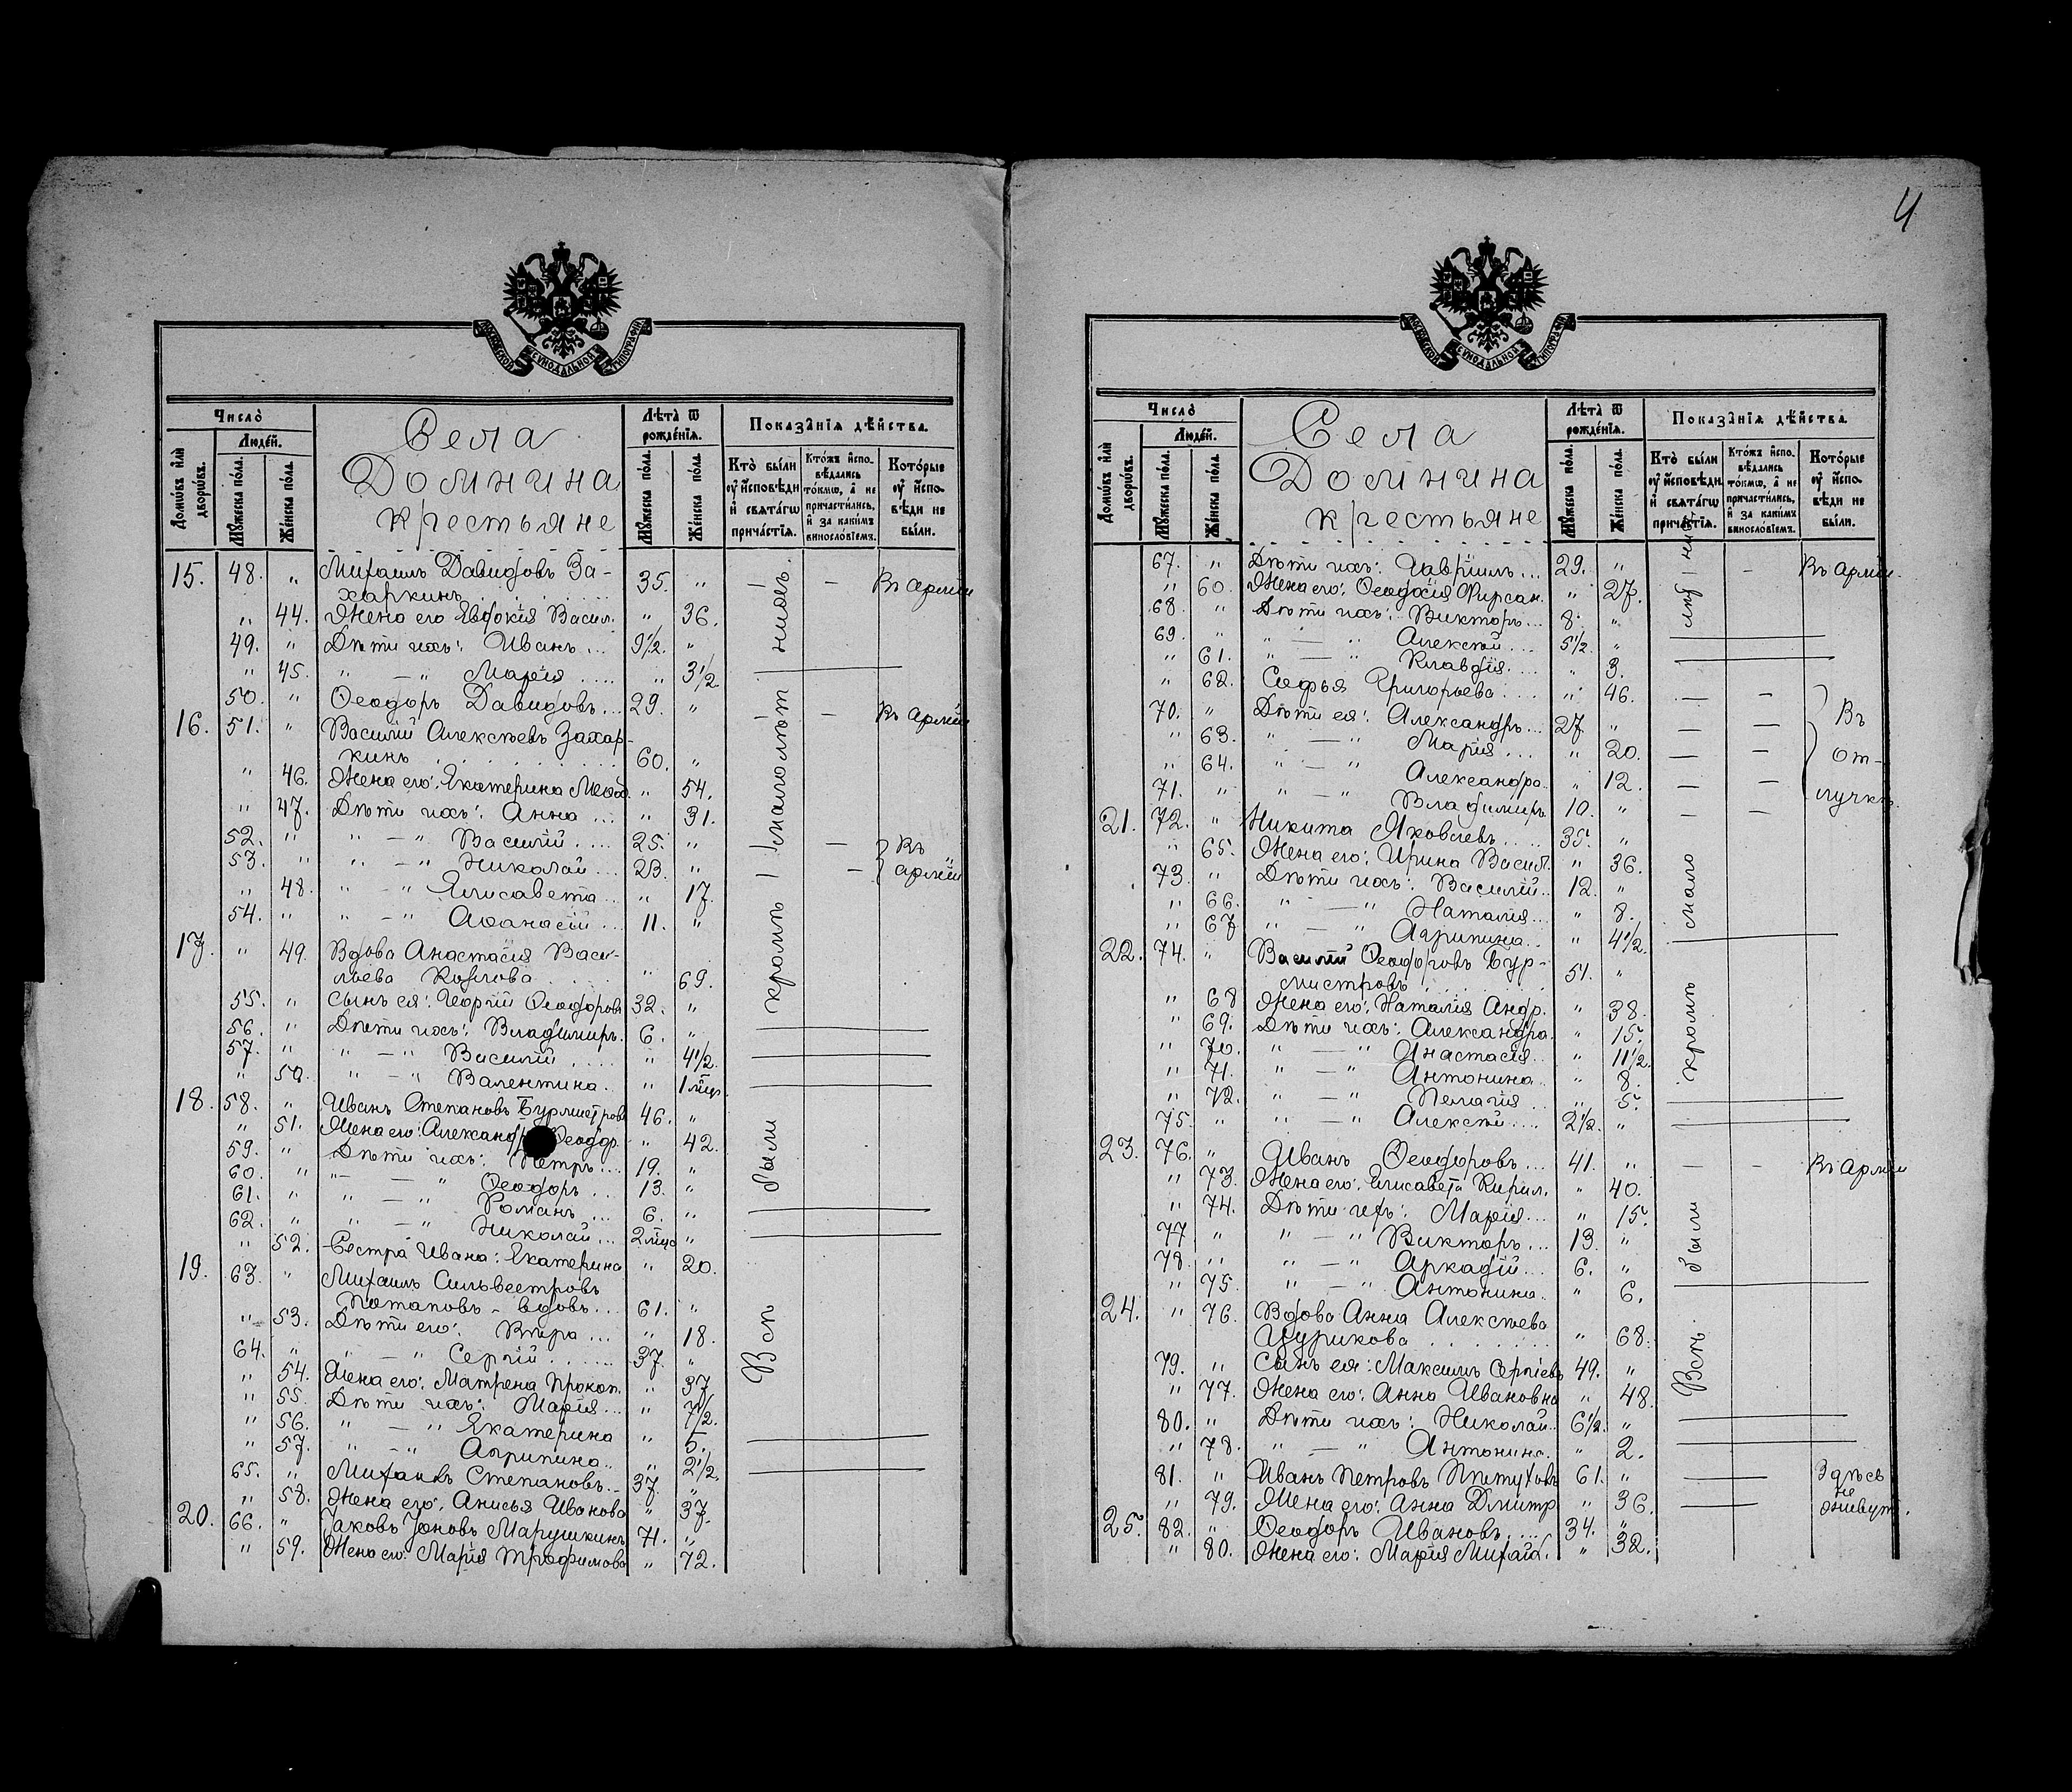 4
МОСКОВСКОЙ СѴНОДАЛЬНОЙ ТИПОГРАФІИ
Число̀
Домѡ́въ и҆лѝ дворѡ́въ.
Люде́й.
Мꙋ́жеска по́ла.
Же́нска по́ла.
Села
Домнина
крестьяне
Лѣта̀ ѿ рожде́нїѧ.
Мꙋ́жеска по́ла.
Же́нска по́ла.
Показа̑нїѧ дѣ́йства.
Кто̀ бы́ли ᲂу҆ и҆́сповѣди и҆ свѧта́гѡ прича́стїѧ.
Кто́жъ и҆сповѣ́дались то́кмѡ, а҆ не причасти́лись, и҆ за каки́мъ винословїемъ.
Кото́рые ᲂу҆ и҆́сповѣди не бы́ли.
15. 48. " Михаилъ Давидовъ За-
харкинъ 35. " — Въ арміи
" 44. Жена его Евдокія Васил. " 36.
49. " Дѣти ихъ: Иванъ... 9½. "
" 45. " — " Марія .... " 3½
50. " Ѳеодоръ Давидовъ... 29. " — Въ арміи
16. 51. " Василій Алексѣевъ Захар-
кинъ 60. "
" 46. Жена его: Екатерина " 54.
" 47. Дѣти ихъ: Анна ... " 31.
52. " " — " Василій .... 25. " — Въ
53. " " — " Николай... 23. " — арміи
" 48. " — " Елисавета... " 17.
54. " " — " Аѳанасій ... 11. "
17. " 49. Вдова Анастасія Васи-
льева Козлова " 69.
55. " Сынъ ея: Георгій Ѳеодоровъ 32. "
56. " Дѣти ихъ: Владиміръ. 6. "
57. " " — " Василій .... " 4½.
" 50. " — " Валентина.. " 1 мѣс.
18. 58. " Иванъ Степановъ Бурмистровъ 46. "
" 51. Жена его: Ѳеодр. " 42.
59. " Дѣти ихъ: Петръ... 19. "
60. " " — " Ѳеодоръ ... 13. "
61. " " — " Романъ ... 6. "
62. " " — " Николай ... 2 мѣс "
" 52. Сестра Ивана: Екатерина " 20.
19. 63. " Михаилъ Сильвестровъ
Потаповъ - вдовъ... 61. "
" 53. Дѣти его: Вѣра ... " 18.
64. " " — " Сергій ...... 37. "
" 54. Жена его: Матрена Прокоп. " 37
" 55. Дѣти ихъ: Марія... " 7½.
" 56. " — " Екатерина " 5.
" 57. " — " Агрипина.. " 2½.
65. " Степановъ.. 37. "
" 58. Жена его: Анисья Иванова " 37.
20. 66. " Іаковъ Іоновъ Марушкинъ 71. "
" 59. Жена его: Марія Трофимова " 72.
Всѣ были кромѣ малолѣтнихъ.
Число̀
Домѡ́въ и҆лѝ дворѡ́въ.
Люде́й.
Мꙋ́жеска по́ла.
Же́нска по́ла.
Села
Домнина
крестьяне
Лѣта̀ ѿ рожде́нїѧ.
Мꙋ́жеска по́ла.
Же́нска по́ла.
Показа̑нїѧ дѣ́йства.
Кто̀ бы́ли ᲂу҆ и҆́сповѣди и҆ свѧта́гѡ прича́стїѧ.
Кто́жъ и҆сповѣ́дались то́кмѡ, а҆ не причасти́лись, и҆ за каки́мъ винословїемъ.
Кото́рые ᲂу҆ и҆́сповѣди не бы́ли.
67. " Дѣти ихъ: Гавріилъ... 29. " — Въ арміи.
" 60. Жена его: Ѳеодосія Фирсан. " 27.
68. " Дѣти ихъ: Викторъ... 8. "
69. " " — " Алексѣй.... 5½. "
" 61. " — " Клавдія.... " 3.
" 62. Софья Григорьева .... " 46. — —
70. " Дѣти ея: Александръ... 27 " — — Въ
" 63. " — " Марія ... " 20. — — от-
" 64. " — " Александра.. " 12. — — лучкѣ.
71. " " — " Владиміръ 10. " — —
21. 72. " Никита Яковлевъ.... 35. "
" 65. Жена его: Ирина Васил. " 36.
73. " Дѣти ихъ: Василій.. 12. "
" 66. " — " Наталія... " 8.
" 67 " — " Агрипина.. " 4½.
22. 74. " Василій Ѳеодоровъ Бур-
мистровъ 51. "
" 68 Жена его: Наталія Андр. " 38.
" 69. Дѣти ихъ: Александра. " 15.
" 70. " — " Анастасія.. " 11½.
" 71. " — " Антонина.. " 8.
" 72. " — " Пелагія .. " 5.
75. " " — " Алексѣй.... 2½. "
23. 76. " Иванъ Ѳеодоровъ... 41. " — — Въ арміи
" 73. Жена его: Елисавета Кирил. " 40.
" 74. Дѣти ихъ: Марія... " 15.
77 " " — " Викторъ... 13. "
78. " " — " Аркадій... 6. "
" 75. " — " Антонина. " 6.
24. " 76. Вдова Анна Алексѣева
Цурикова " 68.
79. " Сынъ ея: Максимъ Сергіевъ 49. "
" 77. Жена его: Анна Ивановна " 48.
80. " Дѣти ихъ: Николай.. 6½. "
" 78. " — " Антонина. " 2.
81. " Иванъ Петровъ Пѣтуховъ 61. " — Здѣсь
не
" 79. Жена его: Анна Дмитр " 36. — живут.
25. 82. " Ѳеодоръ Ивановъ.... 34. "
" 80. Жена его: Марія Михаил. " 32.
Всѣ были кромѣ мало